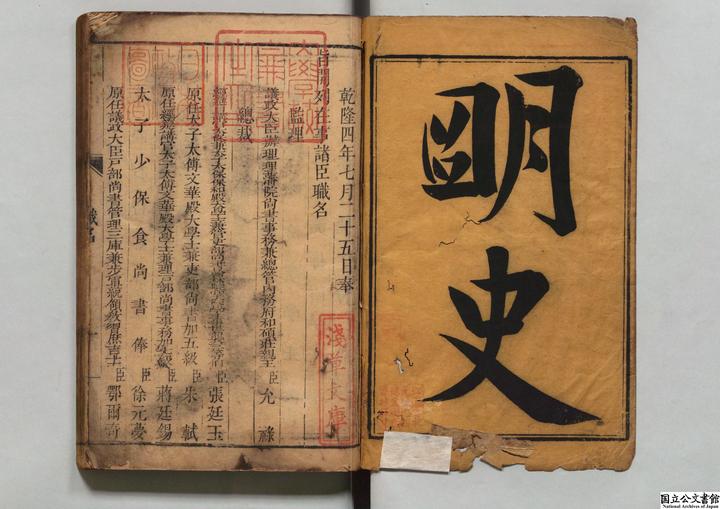 明史
乾隆四年七月二十五日奉
旨開列在事諸臣職名
監理
議政大臣辦理理藩院尚書事務兼總管內務府和碩莊親王臣允祿
總裁
經筵講官 臣張廷玉
原任太子太傅文華殿大學士兼吏部尚書加五級臣朱軾
原任經筵講官太子太傅文華殿大學士兼理戶部尚書事務加 級臣蔣廷錫
太子少保食尚書俸臣徐元夢
原任議政大臣戶部尚書管理三庫兼步軍統領教習庶吉士臣鄂爾奇
職名
淺草文庫
国立公文書館
National Archives of Japan